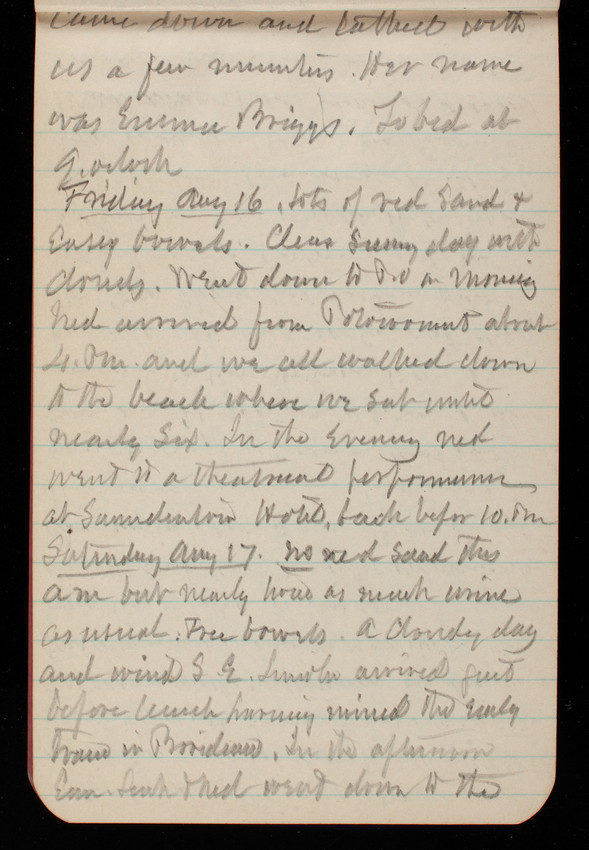 came down and bathed with
us a few minutes. Her name
was Emma Briggs. To bed at
9. oclock
Friday Aug 16. Lots of red Sand &
Easy bowels. Clear Sunny day with
clouds. Went down to P.O in morning
Ned arrived from Potowomut about
4. Pm. and we all walked down
to the beach where we sat until
nearly Six. In the Evening ned
went to a theatrical performance
at Hotel, back before 10. Pm
Saturday Aug 17. no red Sand this
am but nearly twice as much urine
as usual. Free bowels. A Cloudy day
and wind S E. Lincoln arrived just
before lunch having missed the early
train in Providence. In the afternoon
Linc & Ned went down to the